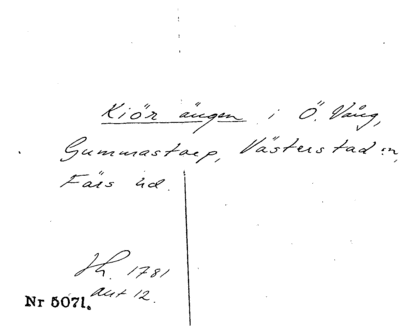 Kiör ängen i Ö. Vång,
Gummastorp, Västerstad sn,
Färs hd.
Sh. 1781
akt 12.
Nr 5071.